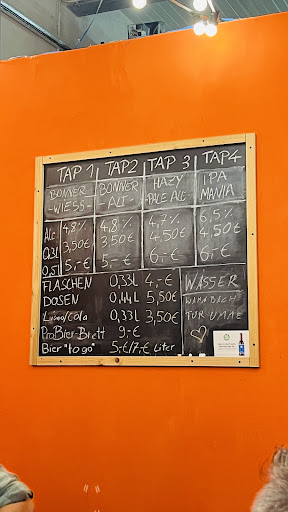 TAP 1 TAP2 TAP 3 TAP4
BÖNNER BÖNNER HAZY IPA
-WIESS- -ALT- -PALE ALE- MANIA
Alc 4,8% 4,8% 4,7% 6,5%
0,3l 3,50€ 3,50€ 4,50€ 4,50€
0,5l 5,-€ 5,-€ 6,-€ 6,-€
FLASCHEN 0,33L 4,-€ WASSER
DOSEN 0,44L 5,50€
Limo/Cola 0,33L 3,50€ FÜR UMME
ProBier-Brett 9,-€
Bier "to go" 5,-€/7,-€ Liter